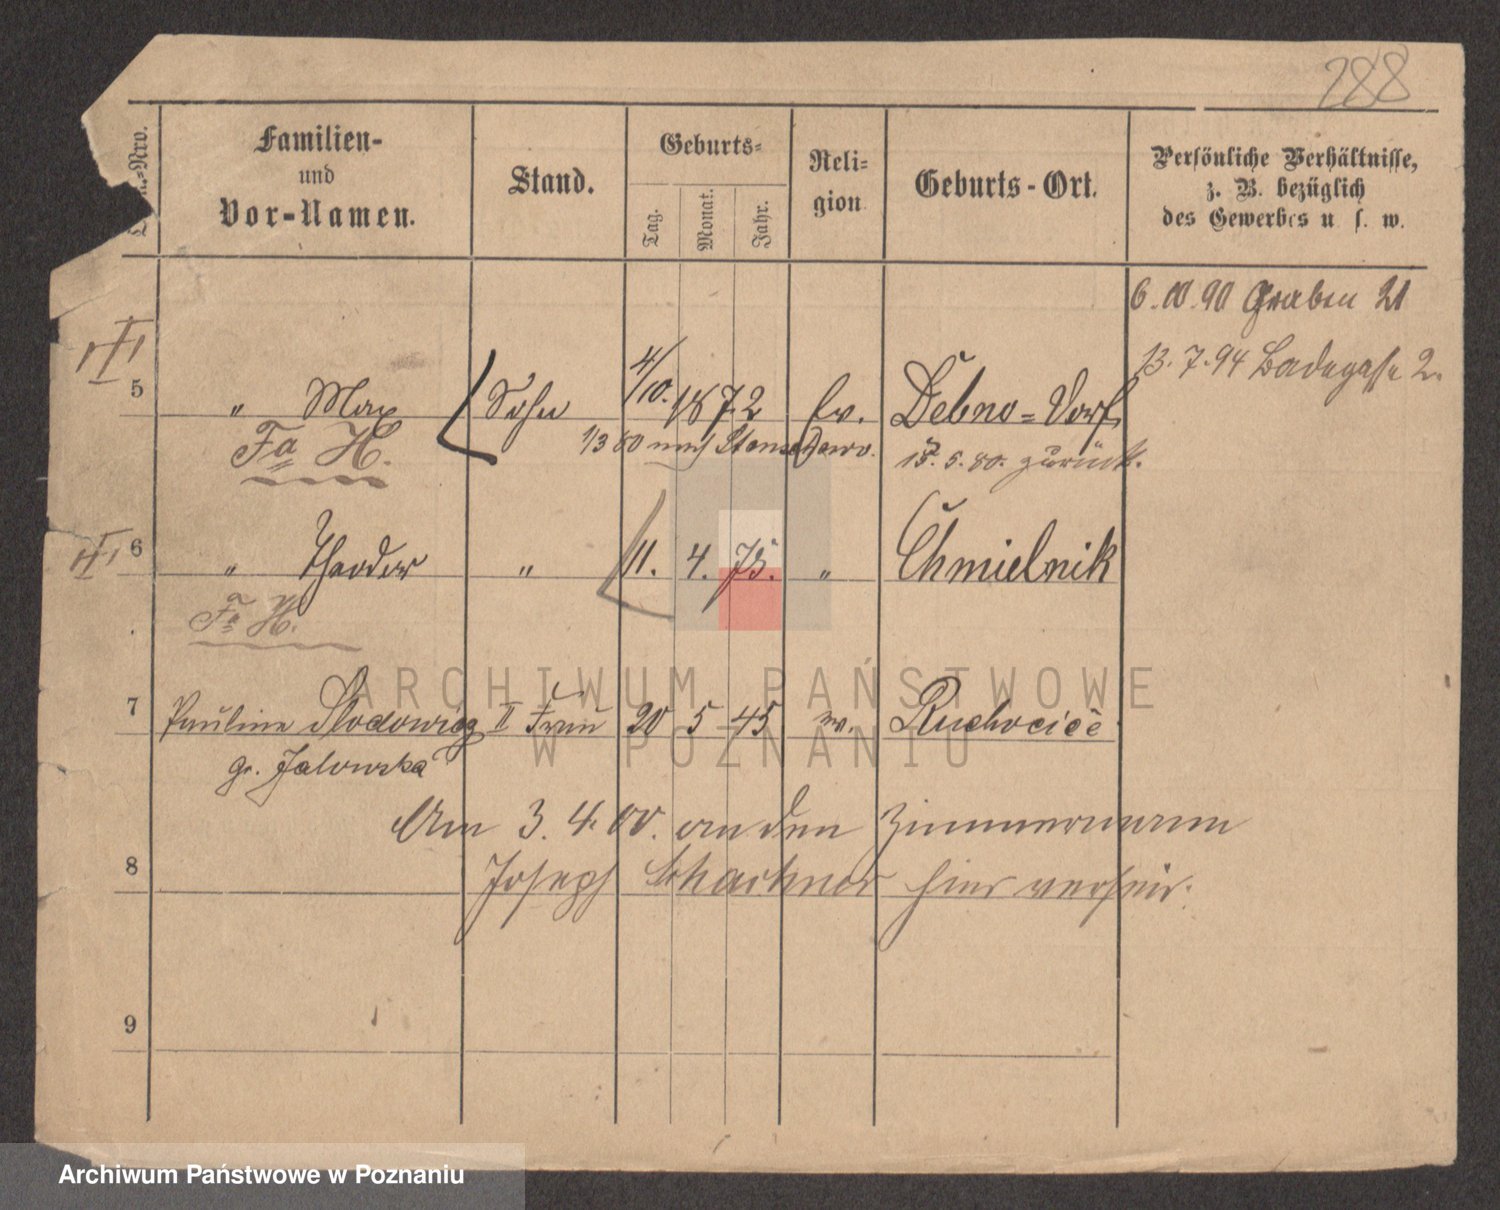 288
Familien-
und
Vor-Namen.
Stand.
Geburts-
Tag.
Monat.
Jahr.
Reli-
gion
Geburts-Ort.
Persönliche Verhältnisse,
z. B. bezüglich
des Gewerbes u. s. w.
6. 10. 90 Graben 21
13. 7. 94 Badegasse 2.
5 " Max Sohn 4/10. 1872 Ev. Debno-Dorf
Fa H. 1/3 80 nach 15. 5. 80. zurück.
6 " Theodor " 11. 4. 75. " Chmielnik
Fa H.
7 Pauline II Frau 20 5 45 Ruchocice
g. Jalowska
Am 3. 4. 00. an den Zimmermann
8 Joseph hier
9
ARCHIWUM PAŃSTWOWE
W POZNANIU
Archiwum Państwowe w Poznaniu